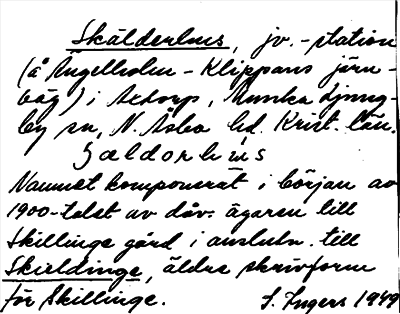 Skälderhus, jv.-station
(å Ängelholm-Klippans järn-
väg) i Axtorp, Munka Ljung-
by sn, N. Åsbo hd. Krist. län.
Namnet komponerat i början av
1900-talet av dåv. ägaren till
Skillinge gård i anslutn. till
Skieldinge, äldre skrivform
för Skillinge.
S. Ingers 1949